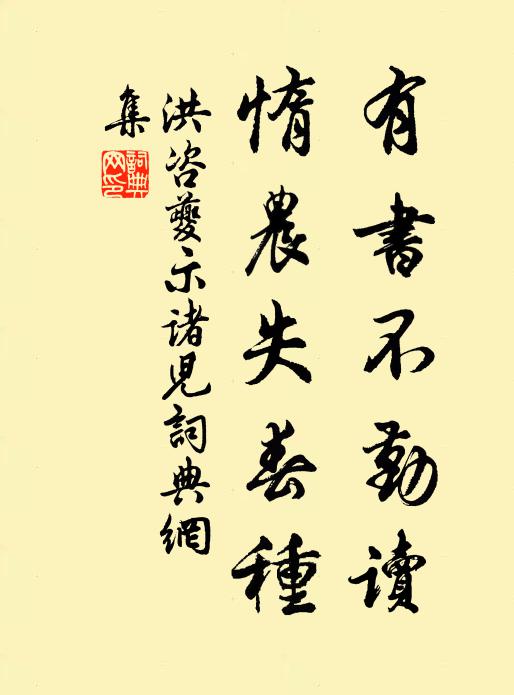 有書不勤讀
惰農失春種
洪咨夔示諸兒詞典網
集
詞典
网印